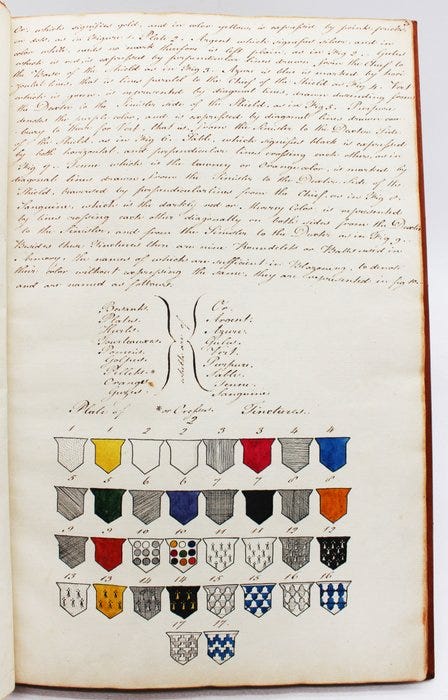 Or, which signifies gold, and in color yellow, is expressed by points, pricks
or dots, as in Figure 1. Plate 2. Argent which signifies silver, and in
color white, nails no mark therefore is left plain, as in Fig 2. Gules
which is red is expressed by perpendicular lines drawn from the Chief to
the Base of the Shield as in Fig 3. Azure is blue is marked by hori
zontal lines, that is lines paralel to the Chief of the Shield, as Fig. 4. Vert
which is green, is represented by diagonal lines, drawn descending from
the Dexter to the Sinister side of the Shield, as in Fig 5. Purpure
denotes the purple color, and is expressed by diagonal lines drawn con-
trary to them for Vert, that is from the Sinister to the Dexter Side
of the Shield, as in Fig 6. Sable, which signifies black is expressed
by both horizontal and perpendicular lines crossing each other, as in
Fig 7. Tenne which is the tawney or color, is marked by
diagonal lines drawn from the Sinister to the Dexter side of the
Shield, traversed by perpendicular lines from the Chief as in Fig 8.
Sanguine, which is the darkly red or Murrey Color is represented
by lines crossing each other diagonally on both sides from the Dexter
to the Sinister, and from the Sinister to the Dexter as in Fig 9.
Besides these Tinctures there are nine Roundelets or Balls used in
Armory, the names of which are sufficient in Blazoning, to denote
their color without expressing the same, they are represented in fig 10.
and are named as follows.
Bezants. Or.
Plates. Argent.
Hurts. Azure.
Torteauxes. Gules.
Pomeis. Vert.
Golpes. Purpure.
Pellets. Sable.
Oranges. Tenne.
Guzes. Sanguine.
Plate of 2 Tinctures.
1 1 2 2 3 3 4 4
5 5 6 6 7 7 8 8
9 9 10 10 11 11 12 12
13 13 14 14 15 15 16 16
17 17